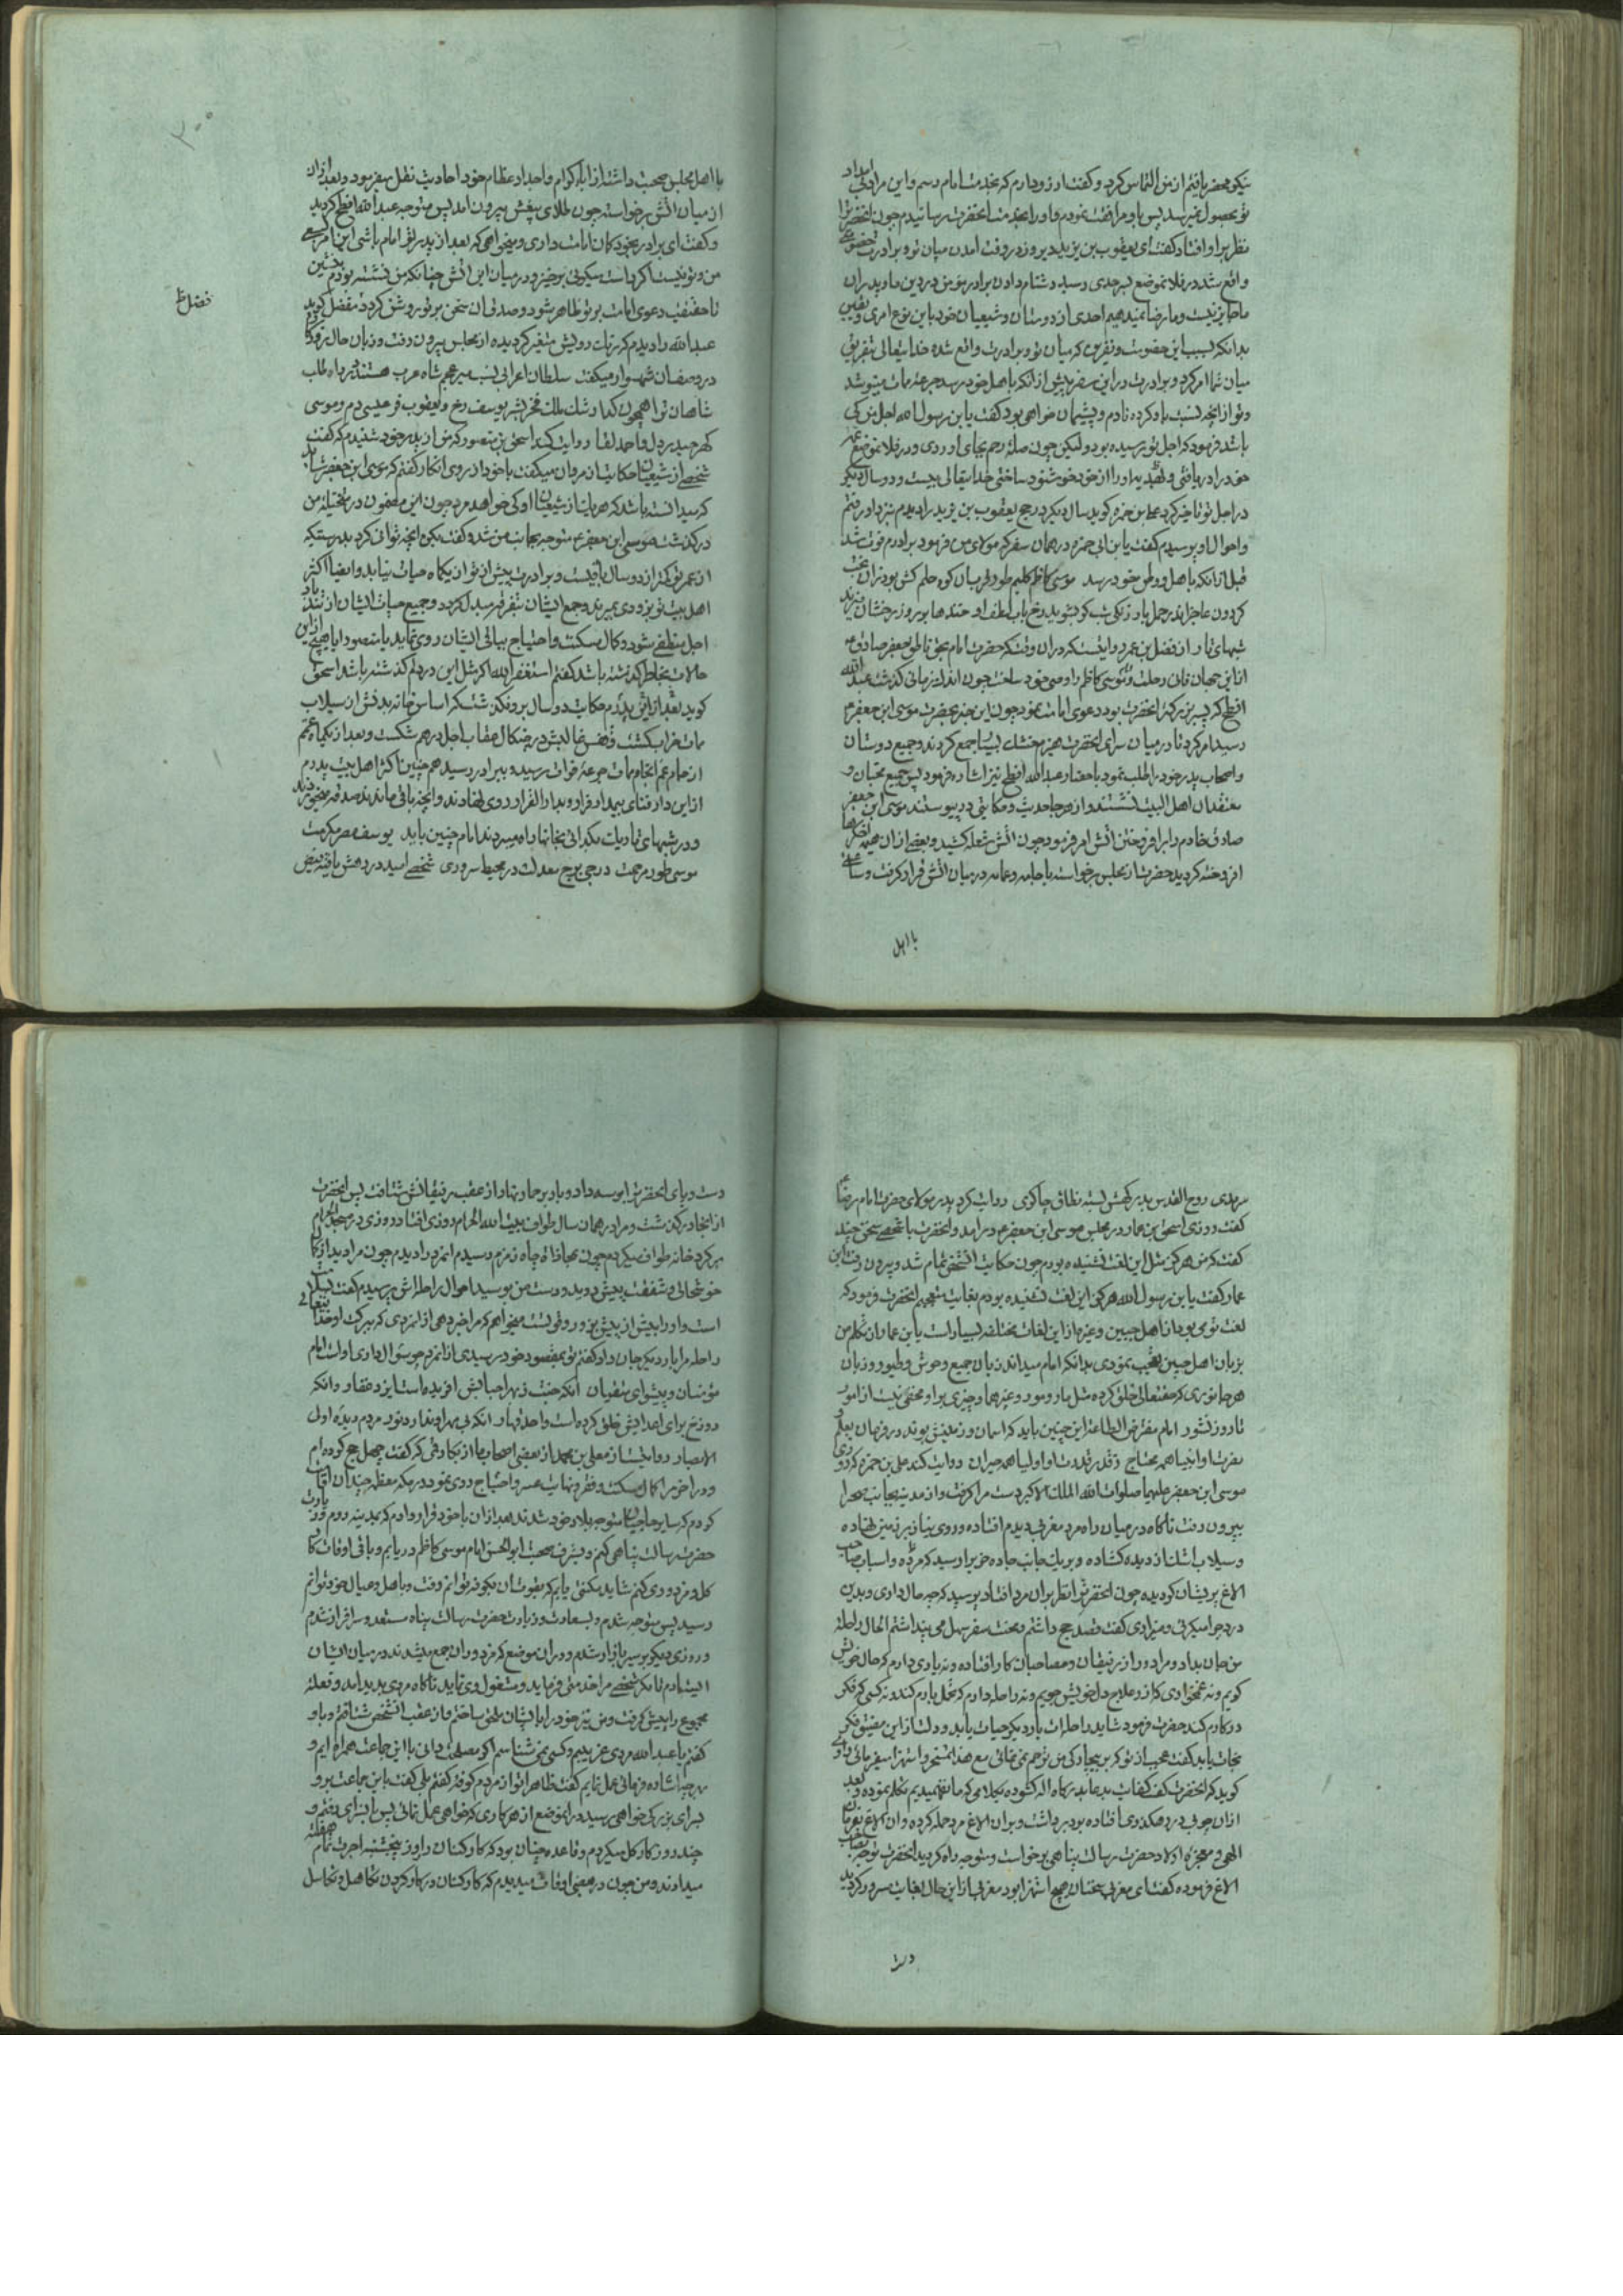 نیکو محضر یافتم از من التماس کرد و کفت ارزو دارم که بخدمت امام رسم و این مراد بی امداد
تو بحصول نمیرسد پس با او مرافقت نمودم و او را بخدمت انحضرت رسانیدم چون انحضرترا
نظر بر او افتاد کفت ای یعقوب بن یزید دیروز در وقت امدن میان تو و برادرت خصومتی
واقع شد در فلان موضع بسرحدی رسید دشنام دادن برادر مؤمن در دین ما و پدران
ما جایز نیست و ما رضا نمیدهیم احدی از دوستان و شیعیان خود باین نوع امری و یقین
بدانکه بسبب این خصومت و نفرین که میان تو و برادرت واقع شده خدایتعالی بتفریق
میان شما امر کرد و برادرت در این سفر پیش از انکه باهل خود رسد جرعه ممات مینوشد
و تو از انچه نسبت باو کرده نادم و پشیمان خواهی بود کفت یا بن رسول الله اجل من کی
باشد فرمود که اجل تو رسیده بود و لیکن چون صله رحم بجای اوردی و در فلان موضع عمه
خود را دریافتی و او را از خود خوشنود ساختی خدایتعالی بیست و دو سال دیکر
در اجل تو تاخیر کرد علی بن حمزه کوید سال دیکر در حج یعقوب بن یزید را دیدم نزد او رفتم
و احوال او پرسیدم کفت یا بن ابی حمزه در همان سفر که مولای من فرمود برادرم فوت شد
قبل از انکه باهل و وطن خود رسد موسی کاظم کلیم طور طربیان کوه حلم کش بود زان
شبهای تار از فضل بن عمر روایتست که در ان وقت که حضرت امام بحق ناطق جعفر صادق ع
از این جهان فانی رحلت و موسی کاظم را وصی خود ساخت چون اندک زمانی کذشت عبدالله
افطح که پسر بزرکتر انحضرت بود دعوی امامت نمود چون این خبر بحضرت موسی ابن جعفر ع
رسید امر کرد تا در میان سرای انحضرت هیزم خشک بسیار جمع کردند و جمیع دوستان
و اصحاب پدر خود را طلب نمود باحضار عبدالله افطح نیز اشاره فرمود پس جمیع محبان و
معتقدان اهل البیت نشستند و از هر جا حدیث و حکایتی در پیوستند موسی ابن جعفر
صادق خادم را بر افروختن اتش امر فرمود چون اتش شعله کشید و بعضی از ان هیمه اخکرها
افروخته کردید حضرت از مجلس برخواسته با جامه و عمامه در میان اتش قرار کرفت و ساعتی
با اهل
۲۰۰
با اهل مجلس صحبت داشته از اباء کرام و اجداد عظام خود احادیث نقل میفرمود و بعد از ان
از میان اتش برخواسته چون طلای بیغش بیرون امد پس متوجه عبدالله افطح کردید
و کفت ای برادر بخود کمان امامت داری و میخواهی که بعد از پدر تو امام باشی این امر
من و تو نیست اکر راست میکوئی برخیز و در میان این اتش چنانکه من نشسته بودم بنشین
تا حقیقت دعوی امامت بر تو ظاهر شود و صدق ان سخن بر تو روشن کردد مفضل کوید
فضل ظ
عبدالله را دیدم که رنک رویش متغیر کردیده از مجلس بیرون رفت و زبان حال
در وصف ان شهسوار میکفت سلطان اعرابی نسب میر عجم شاه عرب هستند در راه طلب
شاهان تو را همچون کدا رشک ملک فخر بشر یوسف رخ و یعقوب فر عیسی دم و موسی
کهر حیدر دل و احمد لقا روایت کند اسحق بن منصور که من از پدر خود شنیدم که کفت
شخصی از شیعیان حکایت از مردن میکفت با خود از روی انکار کفتم که موسی ابن جعفر شاید
که میدانسته باشد که هر یک از شیعیان او کی خواهد مرد چون این مضمون در مخیله من
درکذشت موسی ابن جعفر ع متوجه بجانب من شد و کفت بکن انچه توانی کرد بدرستیکه
از عمر تو کمتر از دو سال باقیست و برادرت پیش از تو از یکماه حیات نیابد و ایضا اکثر
اهل بیت تو بزودی بمیرند و جمع ایشان بتفرقه مبدل کردد و جمیع حیات ایشان از تند باد
اجل منطفی شود و کمال مسکنت و احتیاج بباقی ایشان روی نماید یا منصور ایا هیچ از این
حالات بخاطر کذشته باشد کفتم استغفر الله اکر مثل این در دلم کذشته باشد اسحق
کوید بعد از این پدرم حکایت دو سال برو نکذشت که اساس خانه بدنش از سیلاب
ممات خراب کشت و قفس قالبش در چنکال عقاب اجل درهم شکست و بعد از یکماه عمم
از جام غم انجام ممات جرعه فوات رسید و ببرادر رسید همچنین اکثر اهل بیت پدرم
از این دار فنای بیمدار فرار و بدار القرار روی نهادند و انچه باقی ماندند صدقه میخوردند
و در شبهای تاریک بکدائی بخانها راه میبردند امام چنین باید یوسف مصر مکرمت
موسی طور مرحمت درجی برج معدلت در محیط سروری شخص امید در رهش یافته فیض
سرمدی روح القدس بدرکهش بسته نطاق چاکری روایت کرد بدر مولای حضرت امام رضا ع
کفت روزی اسحق بن عمار در مجلس موسی ابن جعفر ع درامد و انحضرت با شخصی سخنی چند
کفت که من هرکز مثل این لغت نشنیده بودم چون حکایت انشخص تمام شد و بیرون رفت ابن
عمار کفت یا بن رسول الله هرکز این لغت نشنیده بودم بغایت متعجبم انحضرت فرمود که
لغت قومی بود از اهل چین و غیرها از این لغات مختلفه بسیار است یا بن عمار از تکلم من
بزبان اهل چین تعجب نمودی بدانکه امام میداند زبان جمیع وحوش و طیور و زبان
هر جانوری که حقتعالی خلق کرده مثل مار و مور و غیرهما و چیزی بر او مخفی نیست از امور
تا روز نشور امام مفترض الطاعه این چنین باید که اسمان و زمینش بوند در فرمان بعلم
معرفت او انبیا همه محتاج ز قدر و قدرت او اولیا همه حیران روایت کند علی بن حمزه که روزی
موسی ابن جعفر علیهما صلوات الله الملک الاکبر دست مرا کرفت و از مدینه بجانب صحرا
بیرون رفت ناکاه در میان راه مرد مغربی دیدم افتاده و روی نیاز بر زمین نهاده
و سیلاب اشک از دیده کشاده و بر یک جانب جاده خری بر او رسید که مرده و اسباب صاحب
الاغ پریشان کردیده چون انحضرترا نظر بر ان مرد افتاد پرسید که چه حال داری و بدین
درد چرا میکرئی و میزاری کفت قصد حج داشتم و محنت سفر سهل می پنداشتم الحال راحله
من جان بداد و مرا دور از رفیقان و مصاحبان کار افتاده و نه یاری دارم که حال خویش
کویم و نه غمخواری که از او علاج دل خویش جویم و نه راحله دارم که تحمل بارم کند و نه کسی که فکر
در کارم کند حضرت فرمود شاید راحله ات بار دیکر حیات یابد و دلت از این مضیق فکر
نجات یابد کفت عجب از تو که بر بیچارکی من ترحم نمی نمائی مع هذا تمسخر و استهزا میفرمائی راوی
کوید که انحضرت کف کفایت بدعا بدرکاه اله کشوده بکلامی که ما نفهمیدیم تکلم نموده و بعد
از ان چوبی در رهکذری افتاده بود برداشت و بر ان الاغ مرده حمله کرده و ان الاغ بفرمان
الهی و معجزه اولاد حضرت رسالت پناهی برخواست و متوجه راه کردید انحضرت توجه بصاحب
الاغ فرموده کفت ای مغربی سخنان هیچ استهزا بود مغربی از این حال بغایت مسرور کردید
دست
دست و پای انحضرت را بوسه داد و بار بر حمار نهاد از عقب رفیقانش شتافت پس انحضرت
از انجا درکذشت و مرا در همان سال طواف بیت الله الحرام روزی افتاد روزی در مسجد الحرام
بر کرد خانه طواف میکردم چون بمحاذاة چاه زمزم رسیدم انمرد را دیدم چون مرا دید از کمال
خوشحالی و شفقت پیش دوید و دست من بوسید احوال راحله اش پرسیدم کفت
است و او را بیش از پیش زور و قوتست میخواهم که مرا خبر دهی از انمردی که ببرکت او خدایتعالی
راحله مرا بار دیکر جان داد کفتم تو بمقصود خود رسیدی از انمرد چه سؤال داری اوست امام
مؤمنان و پیشوای متقیان انکه جنت ز بهر احبابش افریده است ایزد غفار و انکه
دوزخ برای اعدایش خلق کرده است واحد قهار انکه بی مهر او ندارد نور مردم دیده اولی
الابصار روایتست از معلی بن محمد از بعضی اصحاب ما از بکار قمی که کفت چهل حج کرده ام
و در اخر مرا کمال مسکنت و فقر و نهایت عسر و احتیاج روی نمود در مکه معظمه چندان اقامت
کردم که سایر حاجیان متوجه بلاد خود شدند بعد از ان با خود قرار دادم که بمدینه روم و زیارت
حضرت رسالت پناهی کنم و بشرف صحبت ابو الحسن امام موسی کاظم دریابم و باقی اوقات کار
کل و مزدوری کنم شاید بکنتی یابم که بقوت ان بکوفه توانم رفت و باهل و عیال خود توانم
رسید پس متوجه شدم و بسعادت و زیارت حضرت رسالت پناه مستعد و سرافراز شدم
و روزی دیکر بر سر بازار شدم و در ان موضع که مزدوران جمع میشدند در میان ایشان
ایستادم تا مکر شخصی مرا خدمتی فرماید و مشغول وی نماید ناکاه مردی پدید امد و فعله
مجموع را پیش کرفت و من نیز خود را با ایشان ملحق ساختم و از عقب انشخص شتافتم و باو
کفتم یا عبدالله مردی غریبم و کسی نمی شناسم اکر مصلحت دانی با این جماعت همراه ایم و
بهر چه اشاره فرمائی عمل نمایم کفت ظاهرا تو از مردم کوفه کفتم بلی کفت با این جماعت برو
بسرای بزرکی خواهی رسید در انموضع از هر کاری که خواهی عمل نمائی پس با بسرای رفتم و
چند روز کار کل میکردم و قاعده چنان بود که کارکنان را روز پنجشنبه اجرت تمام هفته
میدادند و من چون در بعضی اوقات میدیدم که کارکنان در کار کردن تکاهل و تکاسل